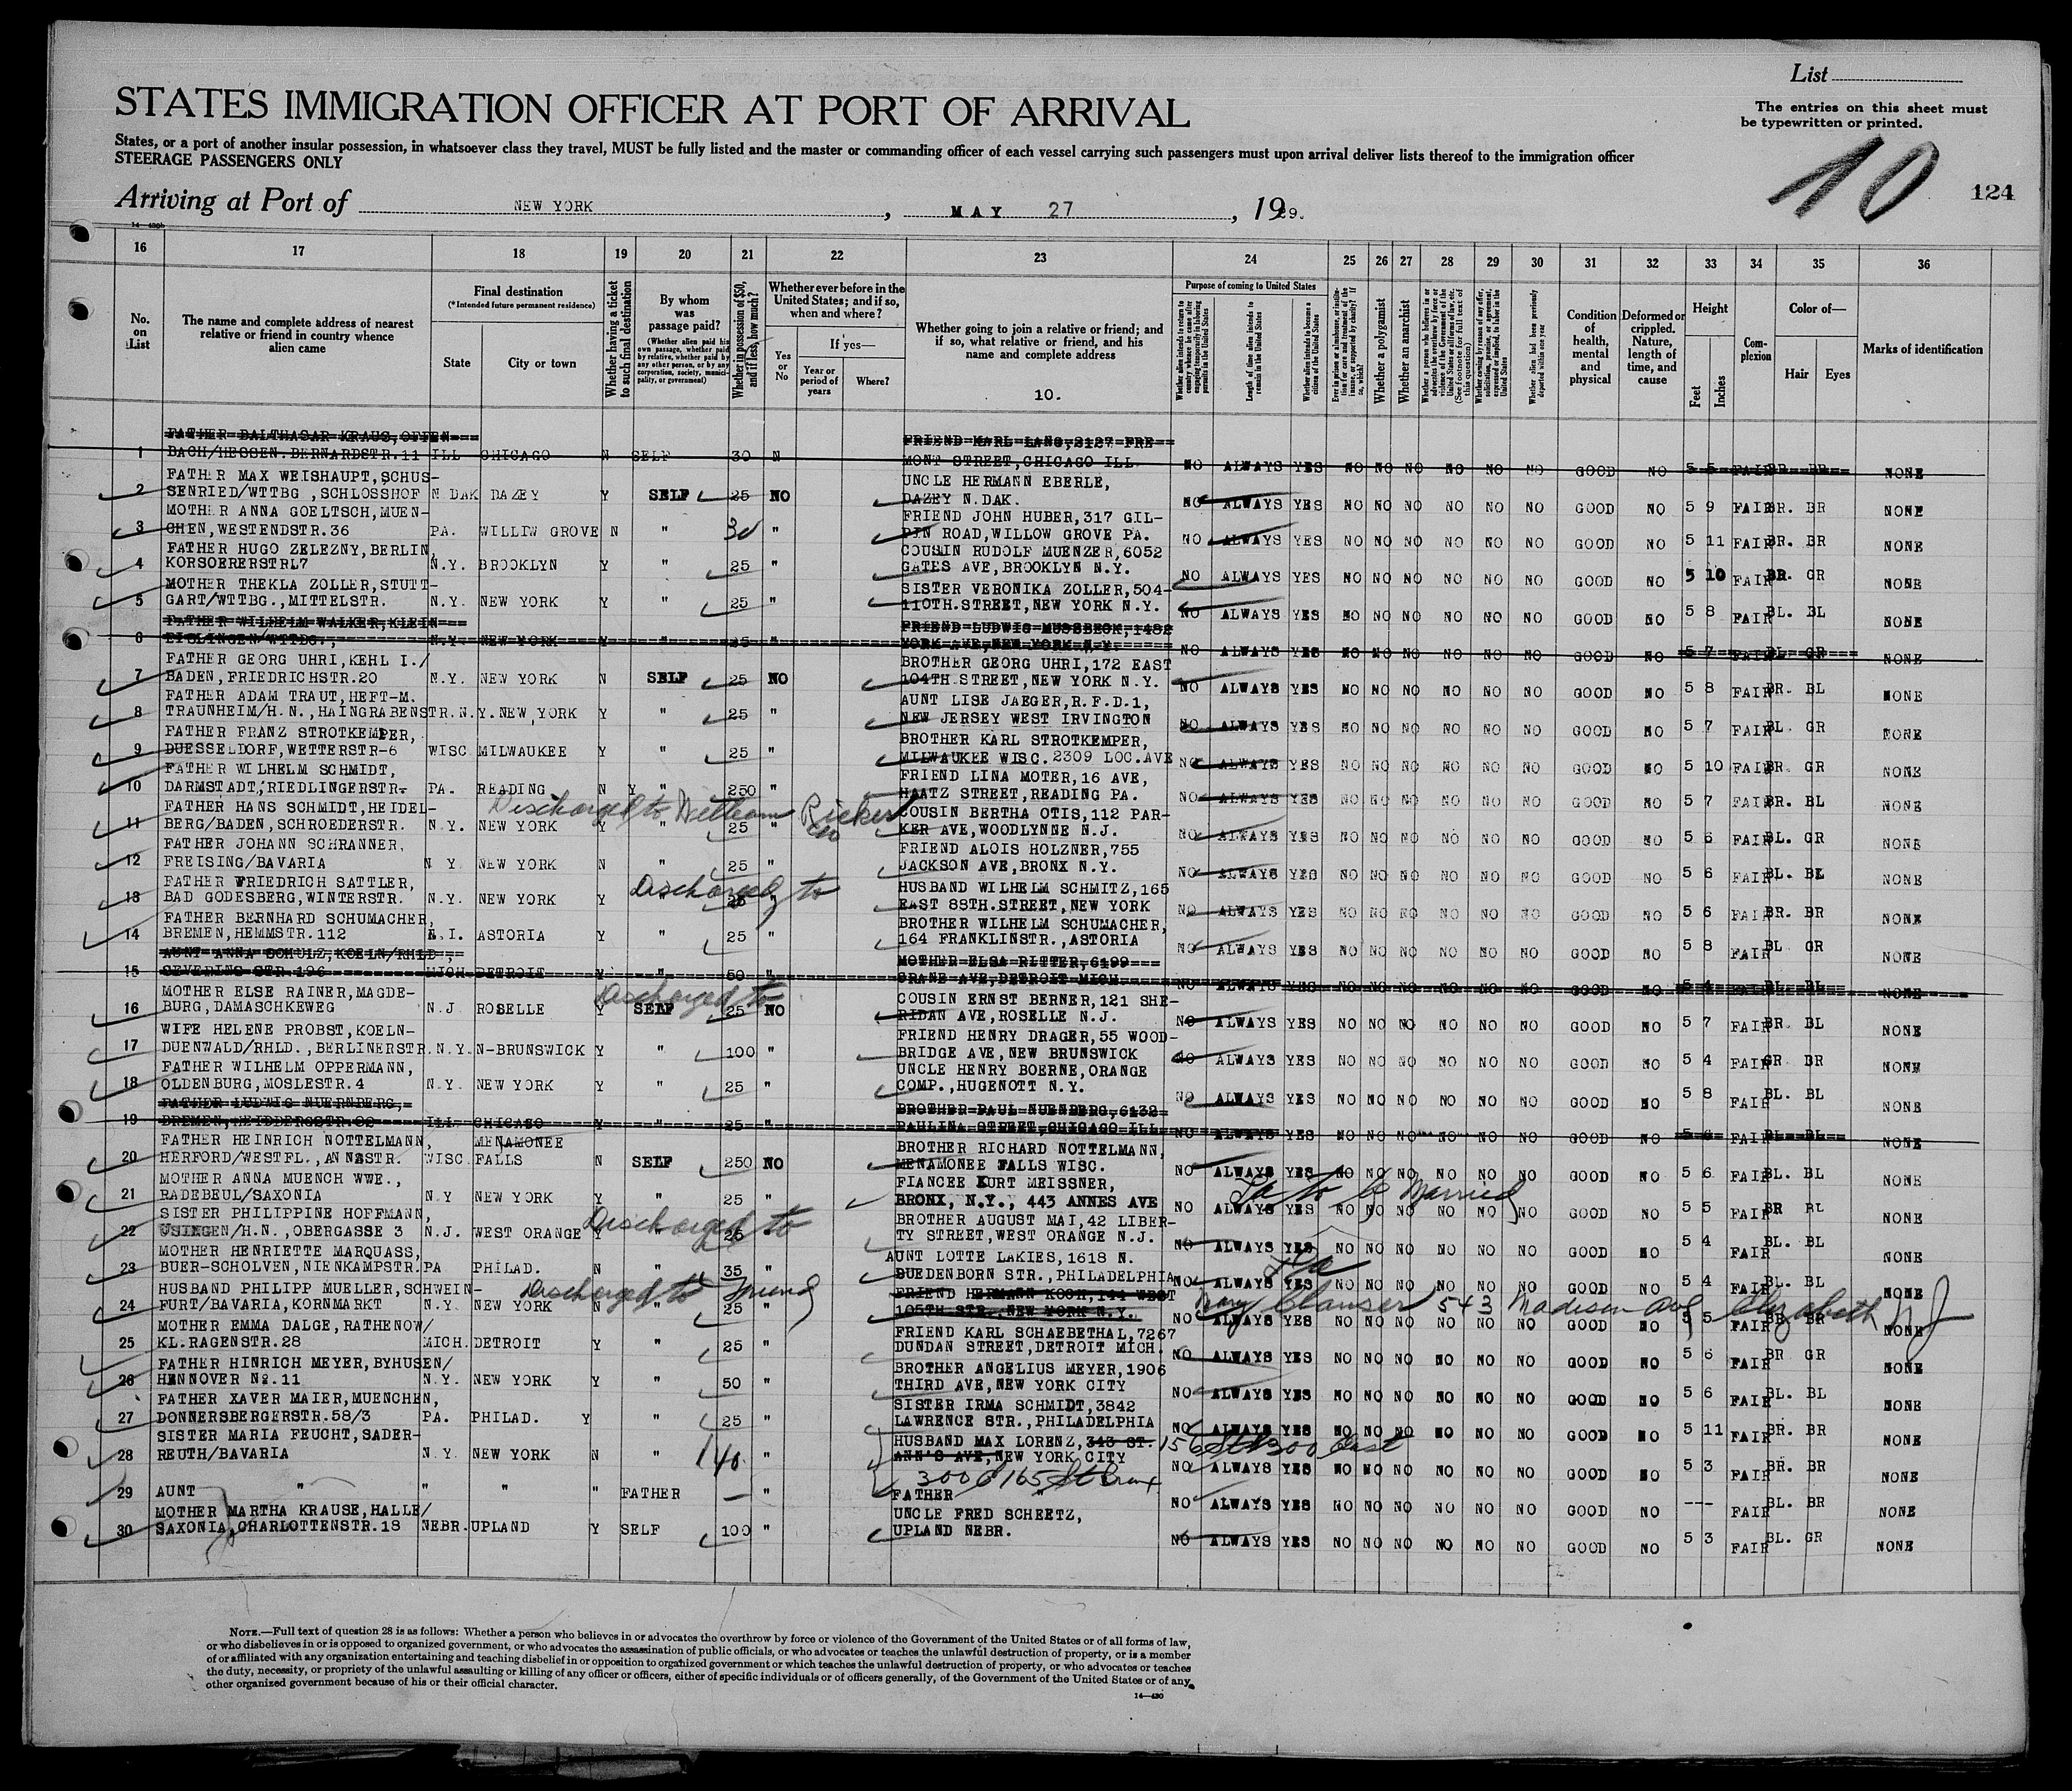 List
The entries on this sheet must
be typewritten or printed.
STATES IMMIGRATION OFFICER AT PORT OF ARRIVAL
States, or a port of another insular possession, in whatsoever class they travel, MUST be fully listed and the master or commanding officer of each vessel carrying such passengers must upon arrival deliver lists thereof to the immigration officer
STEERAGE PASSENGERS ONLY
10
124
Arriving at Port of NEW YORK, MAY 27, 1929.
16 17 18 19 20 21 22 23 24 25 26 27 28 29 30 31 32 33 34 35 36
No. on List
The name and complete address of nearest relative or friend in country whence alien came
Final destination
(*Intended future permanent residence)
State
City or town
Whether having a ticket to such final destination
By whom was passage paid?
(Whether alien paid his own passage, whether paid by relative, whether paid by any other person, or by any corporation, society, municipality, or government)
Whether in possession of $50, and if less, how much?
Whether ever before in the United States; and if so, when and where?
Yes or No
If yes—
Year or period of years
Where?
Whether going to join a relative or friend; and if so, what relative or friend, and his name and complete address
10.
Purpose of coming to United States
Length of time alien intends to remain in the United States
Whether alien intends to become a citizen of the United States
Whether a polygamist
Whether an anarchist
Condition of health, mental and physical
Deformed or crippled. Nature, length of time, and cause
Height
Feet
Inches
Complexion
Color of—
Hair
Eyes
Marks of identification
FATHER BALTHASAR KRAUS, OFFEN- FRIEND KARL LANG, 3127 FRE-
1 BACH/HESSEN.BERNARDSTR.11 ILL CHICAGO N SELF 30 N MONT STREET, CHICAGO ILL. NO ALWAYS YES NO NO NO NO NO NO GOOD NO 5 5 FAIR BR. BR. NONE
FATHER MAX WEISHAUPT, SCHUS- UNCLE HERMANN EBERLE,
2 SENRIED/WTTBG , SCHLOSSHOF N DAK DAZEY Y SELF 25 NO DAZEY N.DAK. NO ALWAYS YES NO NO NO NO NO NO GOOD NO 5 9 FAIR BR. BR NONE
MOTHER ANNA GOELTSCH, MUEN- FRIEND JOHN HUBER, 317 GIL-
3 CHEN, WESTENDSTR.36 PA. WILLIW GROVE N " 30 " PIN ROAD, WILLOW GROVE PA. NO ALWAYS YES NO NO NO NO NO NO GOOD NO 5 11 FAIR BR. BR NONE
FATHER HUGO ZELEZNY, BERLIN, COUSIN RUDOLF MUENZER, 6052
4 KORSOERERSTRL7 N.Y. BROOKLYN Y " 25 " GATES AVE, BROOKLYN N.Y. NO ALWAYS YES NO NO NO NO NO NO GOOD NO 5 10 FAIR BR. GR NONE
MOTHER THEKLA ZOLLER, STUTT- SISTER VERONIKA ZOLLER, 504-
5 GART/WTTBG., MITTELSTR. N.Y. NEW YORK Y " 25 " 110TH.STREET, NEW YORK N.Y. NO ALWAYS YES NO NO NO NO NO NO GOOD NO 5 8 FAIR BL. BL NONE
FATHER WILHELM WALKER, KLEIN FRIEND LUDWIG MUSSBECK, 1482
6 EISLINGEN/WTTBG., N.Y. NEW YORK Y " 25 " YORK AVE, NEW YORK N.Y. NO ALWAYS YES NO NO NO NO NO NO GOOD NO 5 7 FAIR BL GR NONE
FATHER GEORG UHRI, KEHL I./ BROTHER GEORG UHRI, 172 EAST
7 BADEN, FRIEDRICHSTR.20 N.Y. NEW YORK N SELF 25 NO 104TH STREET, NEW YORK N.Y. NO ALWAYS YES NO NO NO NO NO NO GOOD NO 5 8 FAIR BR. BL NONE
FATHER ADAM TRAUT, HEFT-M. AUNT LISE JAEGER, R.F.D-1,
8 TRAUNHEIM/H.N., HAINGRABENSTR. N.Y. NEW YORK Y " 25 " NEW JERSEY WEST IRVINGTON NO ALWAYS YES NO NO NO NO NO NO GOOD NO 5 7 FAIR BL. GR NONE
FATHER FRANZ STROTKEMPER, BROTHER KARL STROTKEMPER,
9 DUESSELDORF, WETTERSTR-6 WISC MILWAUKEE Y " 25 " MILWAUKEE WISC. 2309 LOC.AVE NO ALWAYS YES NO NO NO NO NO NO GOOD NO 5 10 FAIR BR. GR NONE
FATHER WILHELM SCHMIDT, FRIEND LINA MOTER, 16 AVE,
10 DARMSTADT, RIEDLINGERSTR. PA. READING N Y " 250 " HAATZ STREET, READING PA. NO ALWAYS YES NO NO NO NO NO NO GOOD NO 5 7 FAIR BR. BL NONE
Discharged to William Ricker
FATHER HANS SCHMIDT, HEIDEL- COUSIN BERTHA OTIS, 112 PAR-
11 BERG/BADEN, SCHROEDERSTR. N.Y. NEW YORK Y " 25 " KER AVE, WOODLYNNE N.J. NO ALWAYS YES NO NO NO NO NO NO GOOD NO 5 6 FAIR BL. GR NONE
FATHER JOHANN SCHRANNER, FRIEND ALOIS HOLZNER, 755
12 FREISING/BAVARIA N Y. NEW YORK N " 25 " JACKSON AVE, BRONX N.Y. NO ALWAYS YES NO NO NO NO NO NO GOOD NO 5 6 FAIR BL. BL NONE
Discharged to
FATHER FRIEDRICH SATTLER, HUSBAND WILHELM SCHMITZ, 165
13 BAD GODESBERG, WINTERSTR. N.Y. NEW YORK Y " 25 " EAST 88TH.STREET, NEW YORK NO ALWAYS YES NO NO NO NO NO NO GOOD NO 5 6 FAIR BR. BR NONE
FATHER BERNHARD SCHUMACHER, BROTHER WILHELM SCHUMACHER,
14 BREMEN, HEMMSTR.112 .I. ASTORIA Y " 25 " 164 FRANKLINSTR., ASTORIA NO ALWAYS YES NO NO NO NO NO NO GOOD NO 5 8 FAIR BL GR NONE
AUNT ANNA SCHULZ, KOELN/RHLD, MOTHER ELSA RITTER, 6199
15 SEVERINS STR.196 MICH DETROIT Y " 50 " CRANE AVE, DETROIT MICH. NO ALWAYS YES NO NO NO NO NO NO GOOD NO 5 4 FAIR BL. BL NONE
Discharged to
MOTHER ELSE RAINER, MAGDE- COUSIN ERNST BERNER, 121 SHE-
16 BURG, DAMASCHKEWEG N.J ROSELLE Y SELF 25 NO RIDAN AVE, ROSELLE N.J. NO ALWAYS YES NO NO NO NO NO NO GOOD NO 5 7 FAIR BR. BL NONE
WIFE HELENE PROBST, KOELN- FRIEND HENRY DRAGER, 55 WOOD-
17 DUENWALD/RHLD., BERLINERSTR. N.Y. N-BRUNSWICK Y " 100 " BRIDGE AVE, NEW BRUNSWICK NO ALWAYS YES NO NO NO NO NO NO GOOD NO 5 4 FAIR GR. BR NONE
FATHER WILHELM OPPERMANN, UNCLE HENRY BOERNE, ORANGE
18 OLDENBURG, MOSLESTR.4 N.Y. NEW YORK Y " 25 " COMP., HUGENOTT N.Y. NO ALWAYS YES NO NO NO NO NO NO GOOD NO 5 8 FAIR BL. BL NONE
FATHER LUDWIG NUERNBERG, BROTHER PAUL NUERNBERG, 6132
19 BREMEN, ILL CHICAGO Y " 25 " PAULINA STREET, CHICAGO ILL NO ALWAYS YES NO NO NO NO NO NO GOOD NO 5 6 FAIR BL BL NONE
FATHER HEINRICH NOTTELMANN, MENAMONEE BROTHER RICHARD NOTTELMANN,
20 HERFORD/WESTFL., ANNASTR. WISC. FALLS N SELF 250 NO MENAMONEE FALLS WISC. NO ALWAYS YES NO NO NO NO NO NO GOOD NO 5 6 FAIR BL. BL NONE
MOTHER ANNA MUENCH WWE., FIANCEE KURT MEISSNER, to be Married
21 RADEBEUL/SAXONIA N.Y NEW YORK Y " 25 " BRONX, N.Y., 443 ANNES AVE NO ALWAYS YES NO NO NO NO NO NO GOOD NO 5 5 FAIR BR BL NONE
Discharged to
SISTER PHILIPPINE HOFFMANN, BROTHER AUGUST MAI, 42 LIBER-
22 USINGEN/H.N., OBERGASSE 3 N.J. WEST ORANGE Y " 25 " TY STREET, WEST ORANGE N.J. NO ALWAYS YES NO NO NO NO NO NO GOOD NO 5 4 FAIR BL. BL NONE
MOTHER HENRIETTE MARQUASS, AUNT LOTTE LAKIES, 1618 N.
23 BUER-SCHOLVEN, NIENKAMPSTR. PA PHILAD. N " 35 " BUEDENBORN STR., PHILADELPHIA NO ALWAYS YES NO NO NO NO NO NO GOOD NO 5 4 FAIR BL. BL NONE
Discharged to friend
HUSBAND PHILIPP MUELLER, SCHWEIN- FRIEND HERMANN KOCH, 144 WEST Mary Clauser 543 Madison Ave Elizabeth NJ
24 FURT/BAVARIA, KORNMARKT N.Y. NEW YORK N " 25 " 105TH STR., NEW YORK N.Y. NO ALWAYS YES NO NO NO NO NO NO GOOD NO 5 5 FAIR BR. BR NONE
MOTHER EMMA DALGE, RATHENOW/ FRIEND KARL SCHAEBETHAL, 7267
25 KL.RAGENSTR.28 MICH. DETROIT Y " 25 " DUNDAN STREET, DETROIT MICH. NO ALWAYS YES NO NO NO NO NO NO GOOD NO 5 6 FAIR BR GR NONE
FATHER HINRICH MEYER, BYHUSEN/ BROTHER ANGELIUS MEYER, 1906
26 HENNOVER No.11 N.Y. NEW YORK Y " 50 " THIRD AVE, NEW YORK CITY NO ALWAYS YES NO NO NO NO NO NO GOOD NO 5 6 FAIR BL. BL NONE
FATHER XAVER MAIER, MUENCHEN, SISTER IRMA SCHMIDT, 3842
27 DONNERSBERGERSTR.58/3 PA. PHILAD. Y " 25 " LAWRENCE STR., PHILADELPHIA NO ALWAYS YES NO NO NO NO NO NO GOOD NO 5 11 FAIR BR. BR NONE
SISTER MARIA FEUCHT, SADER- HUSBAND MAX LORENZ, 343 ST. 156 St 300 East
28 REUTH/BAVARIA N.Y. NEW YORK N " 140 ANN'S AVE, NEW YORK CITY NO ALWAYS YES NO NO NO NO NO NO GOOD NO 5 3 FAIR BR. BR NONE
300 E 165 St Bronx
29 AUNT " " " " FATHER — " FATHER " NO ALWAYS YES NO NO NO NO NO NO GOOD NO --- FAIR BL. BR NONE
MOTHER MARTHA KRAUSE, HALLE/ UNCLE FRED SCHEETZ,
30 SAXONIA, CHARLOTTENSTR.18 NEBR. UPLAND Y SELF 100 " UPLAND NEBR. NO ALWAYS YES NO NO NO NO NO NO GOOD NO 5 3 FAIR BL. GR NONE
NOTE.—Full text of question 28 is as follows: Whether a person who believes in or advocates the overthrow by force or violence of the Government of the United States or of all forms of law,
or who disbelieves in or is opposed to organized government, or who advocates the assassination of public officials, or who advocates or teaches the unlawful destruction of property, or is a member
of or affiliated with any organization entertaining and teaching disbelief in or opposition to organized government or which teaches the unlawful destruction of property, or who advocates or teaches
the duty, necessity, or propriety of the unlawful assaulting or killing of any officer or officers, either of specific individuals or of officers generally, of the Government of the United States or of any
other organized government because of his or their official character.
14—430